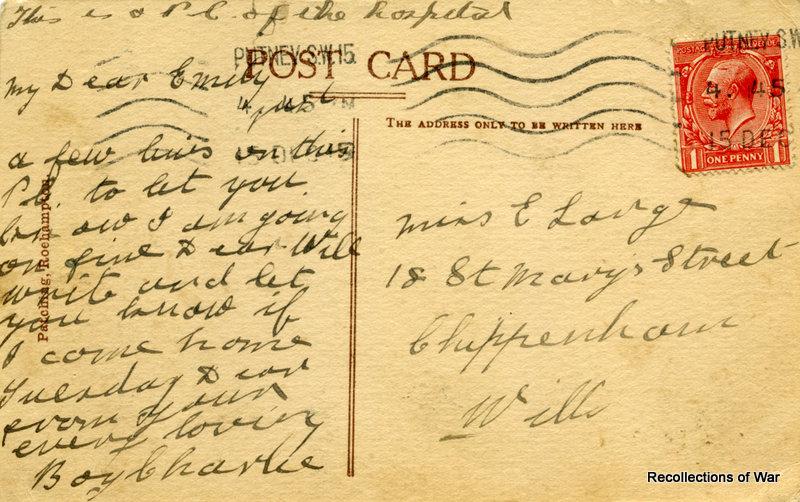 This is a P.C. of the Hospital
My Dear Emily
just
a few lines on this
P.C. to let you
know I am going
on fine Dear Will
write and let
you know if
I come home
Tuesday Dear
from your
every loving
Boy Charlie
Patching, Roehampton
POST CARD
THE ADDRESS ONLY TO BE WRITTEN HERE
PUTNEY S.W.15
4. 45 PM
PUTNEY S.W
4. 45
15 DEC
POSTAGE
1 ONE PENNY 1
Miss E Large
18 St Mary's Street
Chippenham
Wilts
Recollections of War